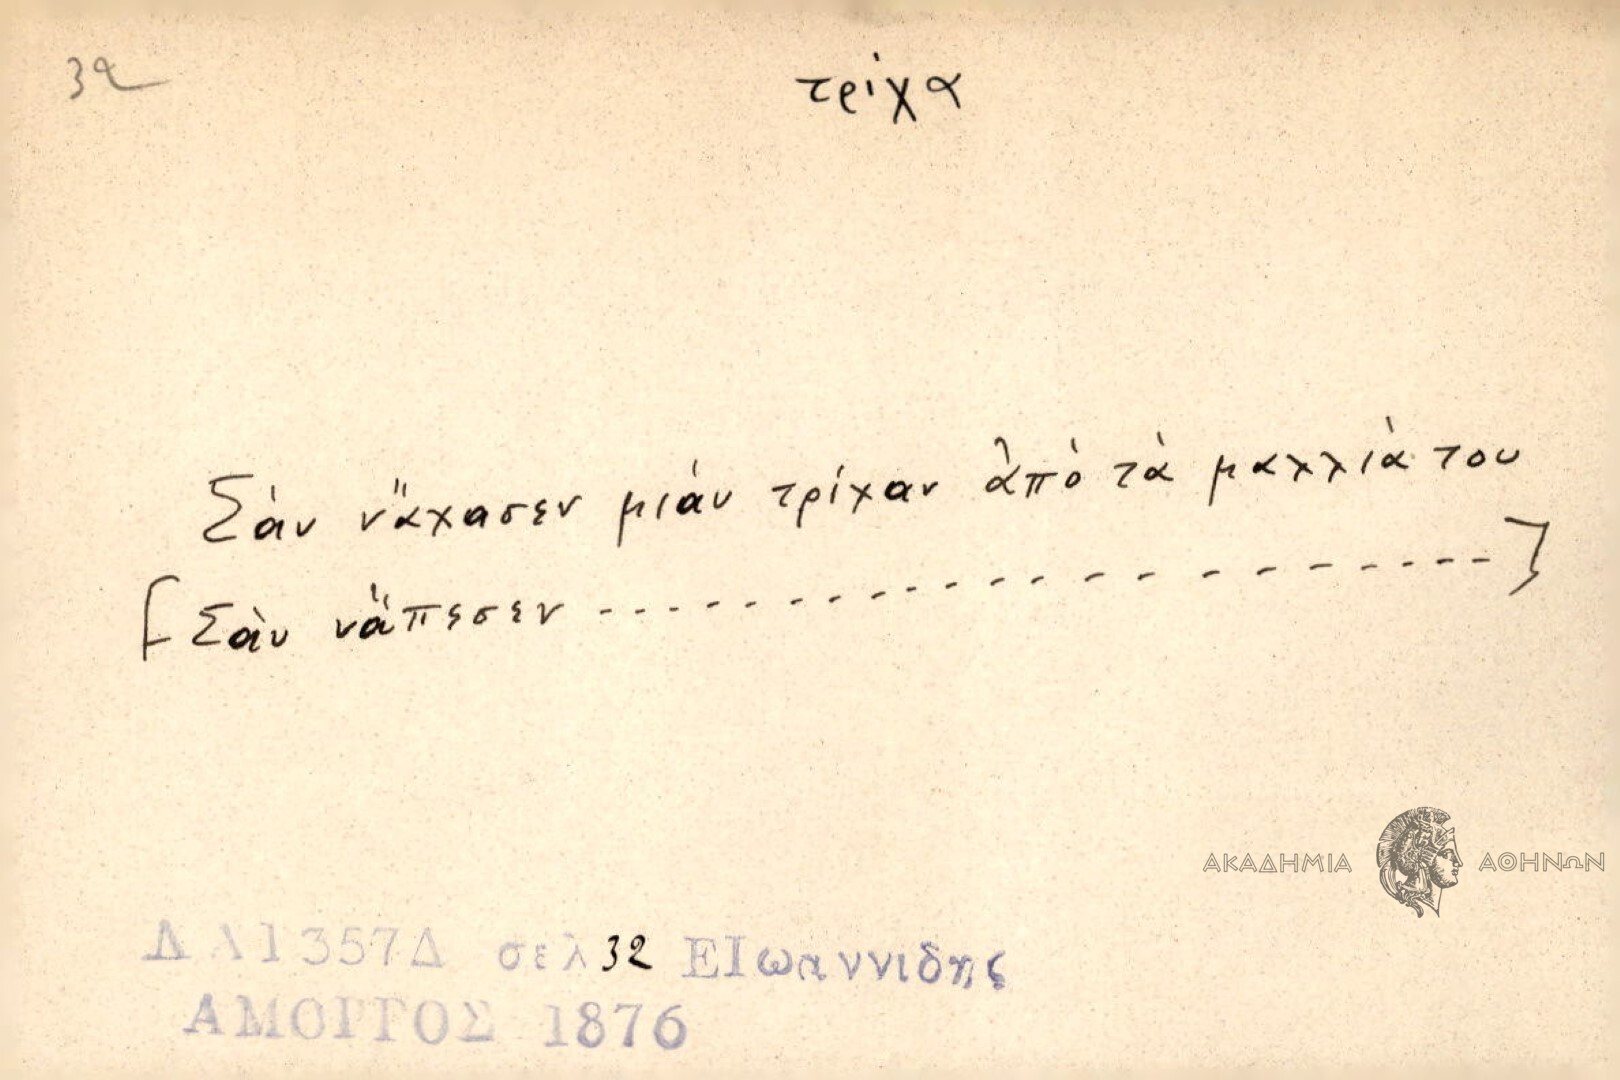 32
τρίχα
Σὰν νἄχασεν μιάν τρίχαν ἀπὸ τὰ μαλλιὰ του
[Σὰν νἄπεσεν - - - - - - - - - - - - - - - - -]
ΑΚΑΔΗΜΙΑ ΑΘΗΝΩΝ
ΔΛ1357Δ σελ 32 ΕΙωαννιδης
ΑΜΟΡΓΟΣ 1876